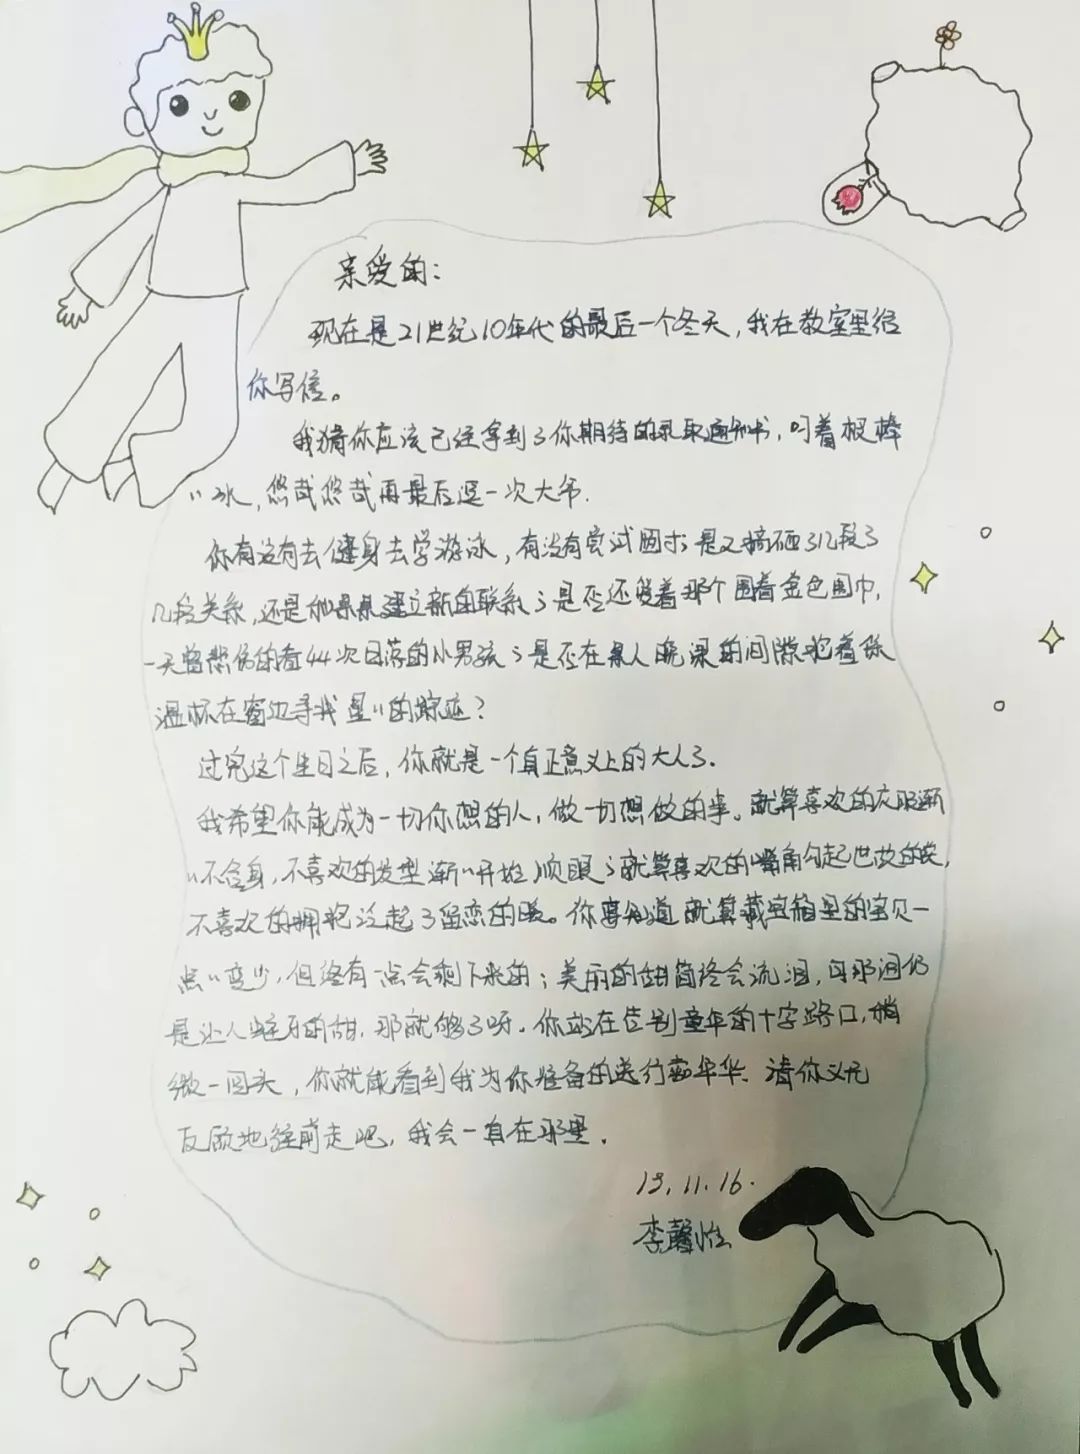 亲爱的：
现在是21世纪10年代的最后一个冬天，我在教室里给
你写信。
我猜你应该已经拿到了你期待的录取通知书，叼着根棒
〃冰，悠哉悠哉再最后逛一次大爷.
你有没有去健身去学游泳，有没有尝试 是又搞砸了几段了
几段关系，还是和 建立新的联系；是否还爱着那个围着金色围巾，
一天曾悲伤的看44次日落的小男孩；是否在 人晚课的间隙抱着保
温杯在窗边寻找星〃的踪迹？
过完这个生日之后，你就是一个真正意义上的大人了.
我希望你能成为一切你想的人，做一切想做的事。就算喜欢的衣服渐
〃不合身，不喜欢的发型渐〃开始顺眼；就算喜欢的嘴角勾起世故的笑，
不喜欢的拥抱泛起了留恋的暖。你要知道就算藏宝箱里的宝贝一
点〃变少，但终有一点会剩下来的；美丽的甜筒终会流泪，可那泪仍
是让人蛀牙的甜，那就够了呀.你站在告别童年的十字路口，稍
微一回头，你就能看到我为你准备的 嘉年华.请你义无
反顾地往前走吧，我会一直在那里.
19.11.16.
李馨怡